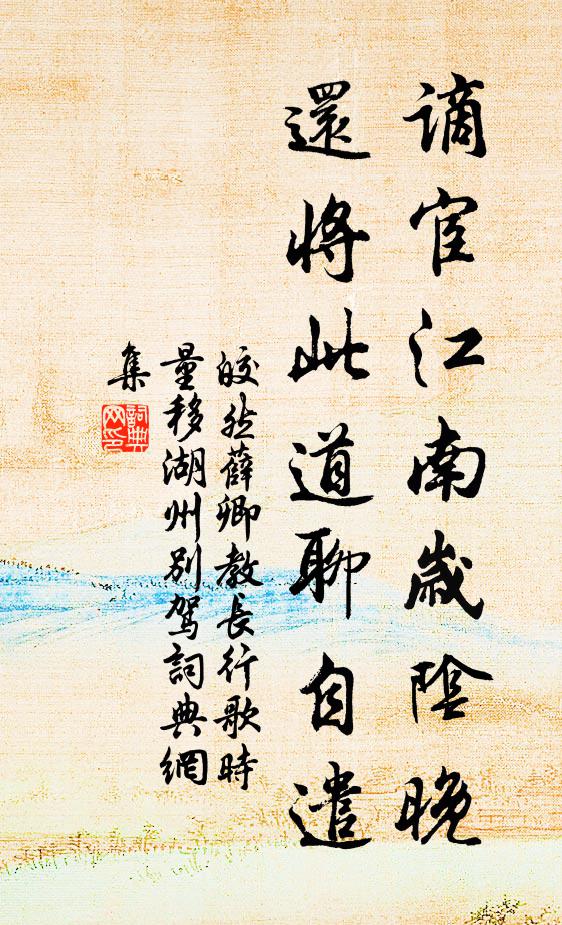 謫宦江南歲陰晚
還將此道聊自遣
皎然薛卿教長行歌時
量移湖州別駕詞典網
集
詞典
网印